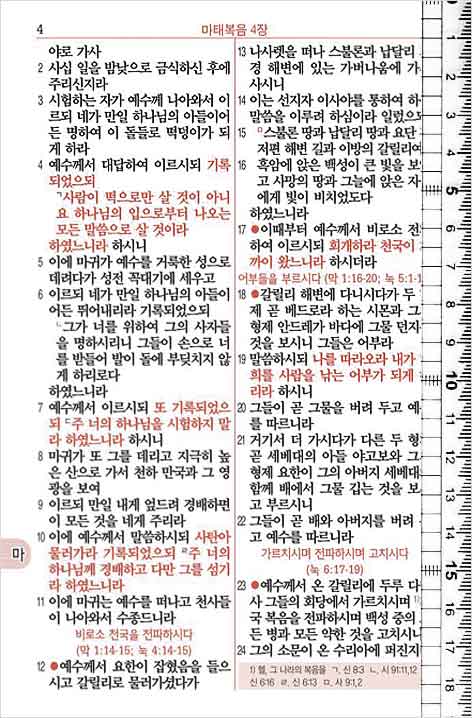 4
마태복음 4장
야로 가사
2 사십 일을 밤낮으로 금식하신 후에
주리신지라
3 시험하는 자가 예수께 나아와서 이
르되 네가 만일 하나님의 아들이어
든 명하여 이 돌들로 떡덩이가 되
게 하라
4 예수께서 대답하여 이르시되 기록
되었으되
ㄱ사람이 떡으로만 살 것이 아니
요 하나님의 입으로부터 나오는
모든 말씀으로 살 것이라
하였느니라 하시니
5 이에 마귀가 예수를 거룩한 성으로
데려다가 성전 꼭대기에 세우고
6 이르되 네가 만일 하나님의 아들이
어든 뛰어내리라 기록되었으되
ㄴ그가 너를 위하여 그의 사자들
을 명하시리니 그들이 손으로 너
를 받들어 발이 돌에 부딪치지 않
게 하리로다
하였느니라
7 예수께서 이르시되 또 기록되었으
되 ㄷ주 너의 하나님을 시험하지 말
라 하였느니라 하시니
8 마귀가 또 그를 데리고 지극히 높
은 산으로 가서 천하 만국과 그 영
광을 보여
9 이르되 만일 내게 엎드려 경배하면
이 모든 것을 네게 주리라
10 이에 예수께서 말씀하시되 사탄아
물러가라 기록되었으되 ㄹ주 너의
하나님께 경배하고 다만 그를 섬기
라 하였느니라
11 이에 마귀는 예수를 떠나고 천사들
이 나아와서 수종드니라
비로소 천국을 전파하시다
(막 1:14-15; 눅 4:14-15)
12 ●예수께서 요한이 잡혔음을 들으
시고 갈릴리로 물러가셨다가
마
13 나사렛을 떠나 스불론과 납달리
경 해변에 있는 가버나움에 가
사시니
14 이는 선지자 이사야를 통하여 하
말씀을 이루려 하심이라 일렀으
15 ㅁ스불론 땅과 납달리 땅과 요단
저편 해변 길과 이방의 갈릴리여
16 흑암에 앉은 백성이 큰 빛을 보
고 사망의 땅과 그늘에 앉은 자
에게 빛이 비치었도다
하였느니라
17 ●이때부터 예수께서 비로소 전
하여 이르시되 회개하라 천국이
까이 왔느니라 하시더라
어부들을 부르시다 (막 1:16-20; 눅 5:1-1
18 ●갈릴리 해변에 다니시다가 두
제 곧 베드로라 하는 시몬과 그
형제 안드레가 바다에 그물 던지
것을 보시니 그들은 어부라
19 말씀하시되 나를 따라오라 내가
희를 사람을 낚는 어부가 되게
리라 하시니
20 그들이 곧 그물을 버려 두고 예
를 따르니라
21 거기서 더 가시다가 다른 두 형
곧 세베대의 아들 야고보와 그
형제 요한이 그의 아버지 세베대
함께 배에서 그물 깁는 것을 보
고 부르시니
22 그들이 곧 배와 아버지를 버려
고 예수를 따르니라
가르치시며 전파하시며 고치시다
(눅 6:17-19)
23 ●예수께서 온 갈릴리에 두루 다
사 그들의 회당에서 가르치시며
국 복음을 전파하시며 백성 중의
든 병과 모든 약한 것을 고치시니
24 그의 소문이 온 수리아에 퍼진지
1) 헬, 그 나라의 복음을 ㄱ. 신 8:3 ㄴ. 시 91:11,12
신 6:16 ㄹ. 신 6:13 ㅁ. 사 9:1,2
1
2
3
4
5
6
7
8
9
10
11
12
13
14
15
16
17
18